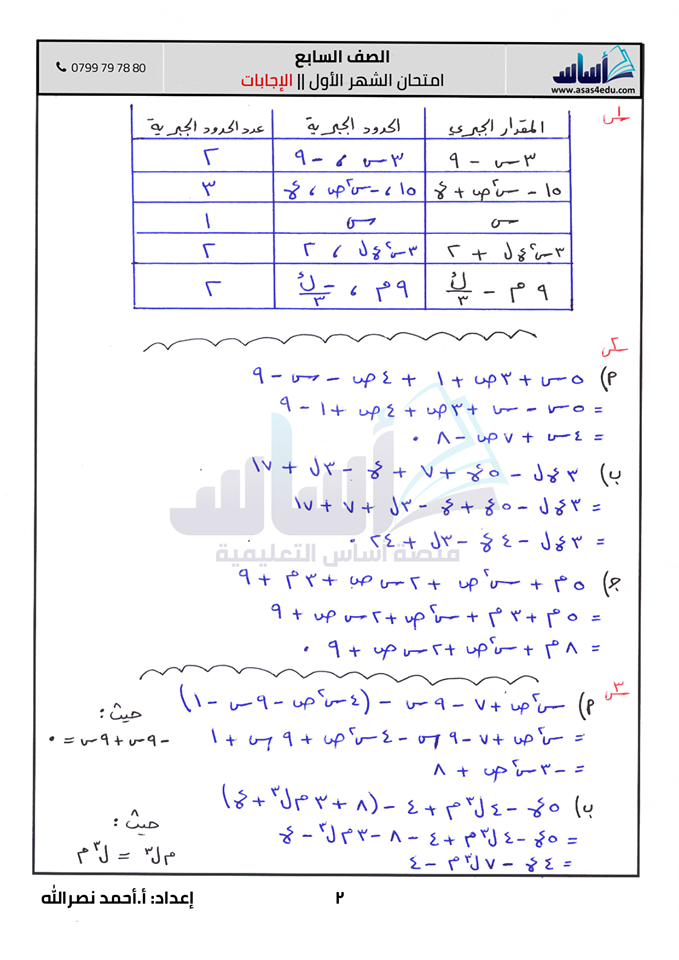 أساس
www.asas4edu.com
الصف السابع
امتحان الشهر الأول || الإجابات
0799 79 78 80
س١
المقدار الجبري | الحدود الجبرية | عدد الحدود الجبرية
٣س - ٩ | ٣س ، - ٩ | ٢
١٥ - س٢ص + ع | ١٥ ، -س٢ص ، ع | ٣
س | س | ١
٣س٢ع ل + ٢ | ٣س٢ع ل ، ٢ | ٢
٩م - ك/٣ | ٩م ، -ك/٣ | ٢
س٢
م) ٥س + ٣ص + ١ + ٤ص - س - ٩
= ٥س - س + ٣ص + ٤ص + ١ - ٩
= ٤س + ٧ص - ٨ .
ب) ٣ع ل - ٥ع + ٧ + ع - ٣ل + ١٧
= ٣ع ل - ٥ع + ع - ٣ل + ٧ + ١٧
= ٣ع ل - ٤ع - ٣ل + ٢٤ .
ج) ٥م + س٢ص + ٢س ص + ٣م + ٩
= ٥م + ٣م + س٢ص + ٢س ص + ٩
= ٨م + س٢ص + ٢س ص + ٩ .
أساس
منصة أساس التعليمية
س٣
م) س٢ص + ٧ - ٩س - (٤س٢ص - ٩س - ١)
= س٢ص + ٧ - ٩س - ٤س٢ص + ٩س + ١
= -٣س٢ص + ٨
حيث :
-٩س + ٩س = ٠
ب) ٥ع - ٤ل٣م + ٤ - (٨ + ٣م ل٣ + ع)
= ٥ع - ٤ل٣م + ٤ - ٨ - ٣م ل٣ - ع
= ٤ع - ٧ل٣م - ٤
حيث :
م ل٣ = ل٣م
إعداد: أ.أحمد نصرالله
٢